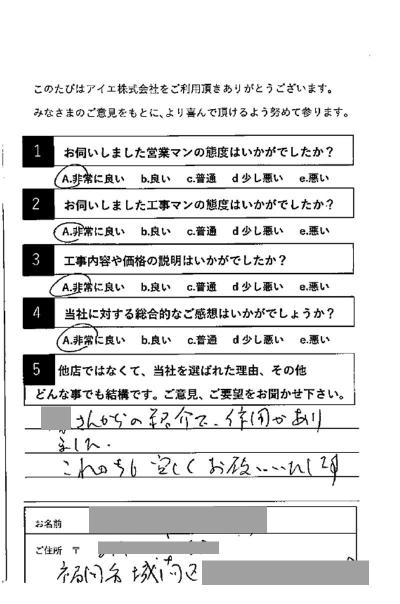 このたびはアイエ株式会社をご利用頂きありがとうございます。
みなさまのご意見をもとに、より喜んで頂けるよう努めて参ります。
1 お伺いしました営業マンの態度はいかがでしたか？
A.非常に良い b.良い c.普通 d 少し悪い e.悪い
2 お伺いしました工事マンの態度はいかがでしたか？
A.非常に良い b.良い c.普通 d 少し悪い e.悪い
3 工事内容や価格の説明はいかがでしたか？
A.非常に良い b.良い c.普通 d 少し悪い e.悪い
4 当社に対する総合的なご感想はいかがでしょうか？
A.非常に良い b.良い c.普通 d 少し悪い e.悪い
5 他店ではなくて、当社を選ばれた理由、その他
どんな事でも結構です。ご意見、ご要望をお聞かせ下さい。
さんからの紹介で、信用があり
ました。
これからも宜しくお願いいたします
お名前
ご住所 〒
福岡市城南区